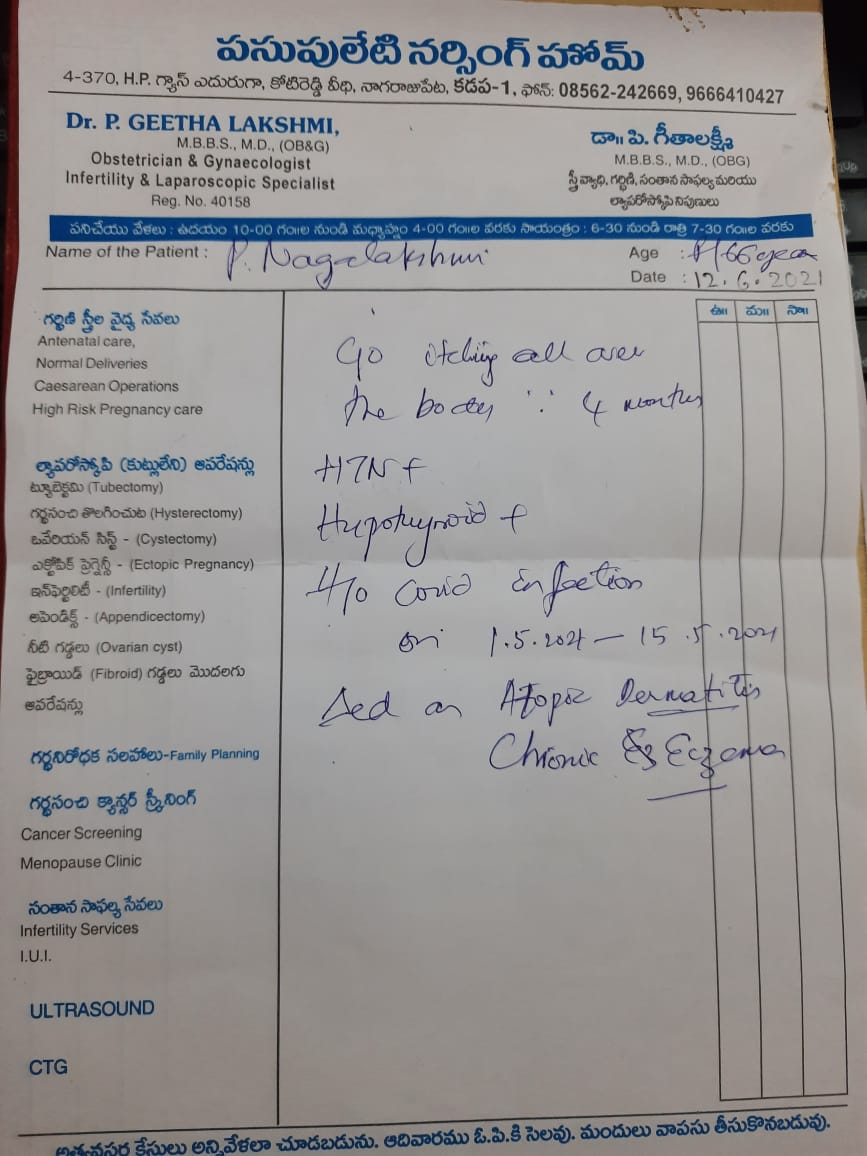 పసుపులేటి నర్సింగ్ హోమ్
4-370, H.P. గ్యాస్ ఎదురుగా, కోటిరెడ్డి వీధి, నాగరాజుపేట, కడప-1, ఫోన్: 08562-242669, 9666410427
Dr. P. GEETHA LAKSHMI,
M.B.B.S., M.D., (OB&G)
Obstetrician & Gynaecologist
Infertility & Laparoscopic Specialist
Reg. No. 40158
డా॥ పి. గీతాలక్ష్మీ
M.B.B.S., M.D., (OBG)
స్త్రీ వ్యాధి, గర్భిణి, సంతాన సాఫల్య మరియు
ల్యాపరోస్కోపి నిపుణులు
పనిచేయు వేళలు : ఉదయం 10-00 గం॥ల నుండి మధ్యాహ్నం 4-00 గం॥ల వరకు సాయంత్రం : 6-30 నుండి రాత్రి 7-30 గం॥ల వరకు
Name of the Patient : P. Nagalakshmi
Age : 66 year
Date : 12.6.2021
ఉ॥ మ॥ సా॥
గర్భిణి స్త్రీల వైద్య సేవలు
Antenatal care,
Normal Deliveries
Caesarean Operations
High Risk Pregnancy care
ల్యాపరోస్కోపి (కుట్లులేని) ఆపరేషన్లు
ట్యూబెక్టమి (Tubectomy)
గర్భసంచి తొలగించుట (Hysterectomy)
ఒవేరియన్ సిస్ట్ - (Cystectomy)
ఎక్టోపిక్ ప్రెగ్నెన్సీ - (Ectopic Pregnancy)
ఇన్‌ఫెర్టిలిటీ - (Infertility)
అపెండిక్స్ - (Appendicectomy)
నీటి గడ్డలు (Ovarian cyst)
ఫైబ్రాయిడ్ (Fibroid) గడ్డలు మొదలగు
ఆపరేషన్లు
గర్భనిరోధక సలహాలు-Family Planning
గర్భసంచి క్యాన్సర్ స్క్రీనింగ్
Cancer Screening
Menopause Clinic
సంతాన సాఫల్య సేవలు
Infertility Services
I.U.I.
ULTRASOUND
CTG
C/o itching all over
the body ∵ 4 months
HTN +
Hypothyroid +
H/o Covid infection
on 1.5.2021 – 15.5.2021
on Atopic Dermatitis
Chronic Eczema
అత్యవసర కేసులు అన్నివేళలా చూడబడును. ఆదివారము ఓ.పి.కి సెలవు. మందులు వాపసు తీసుకొనబడువు.